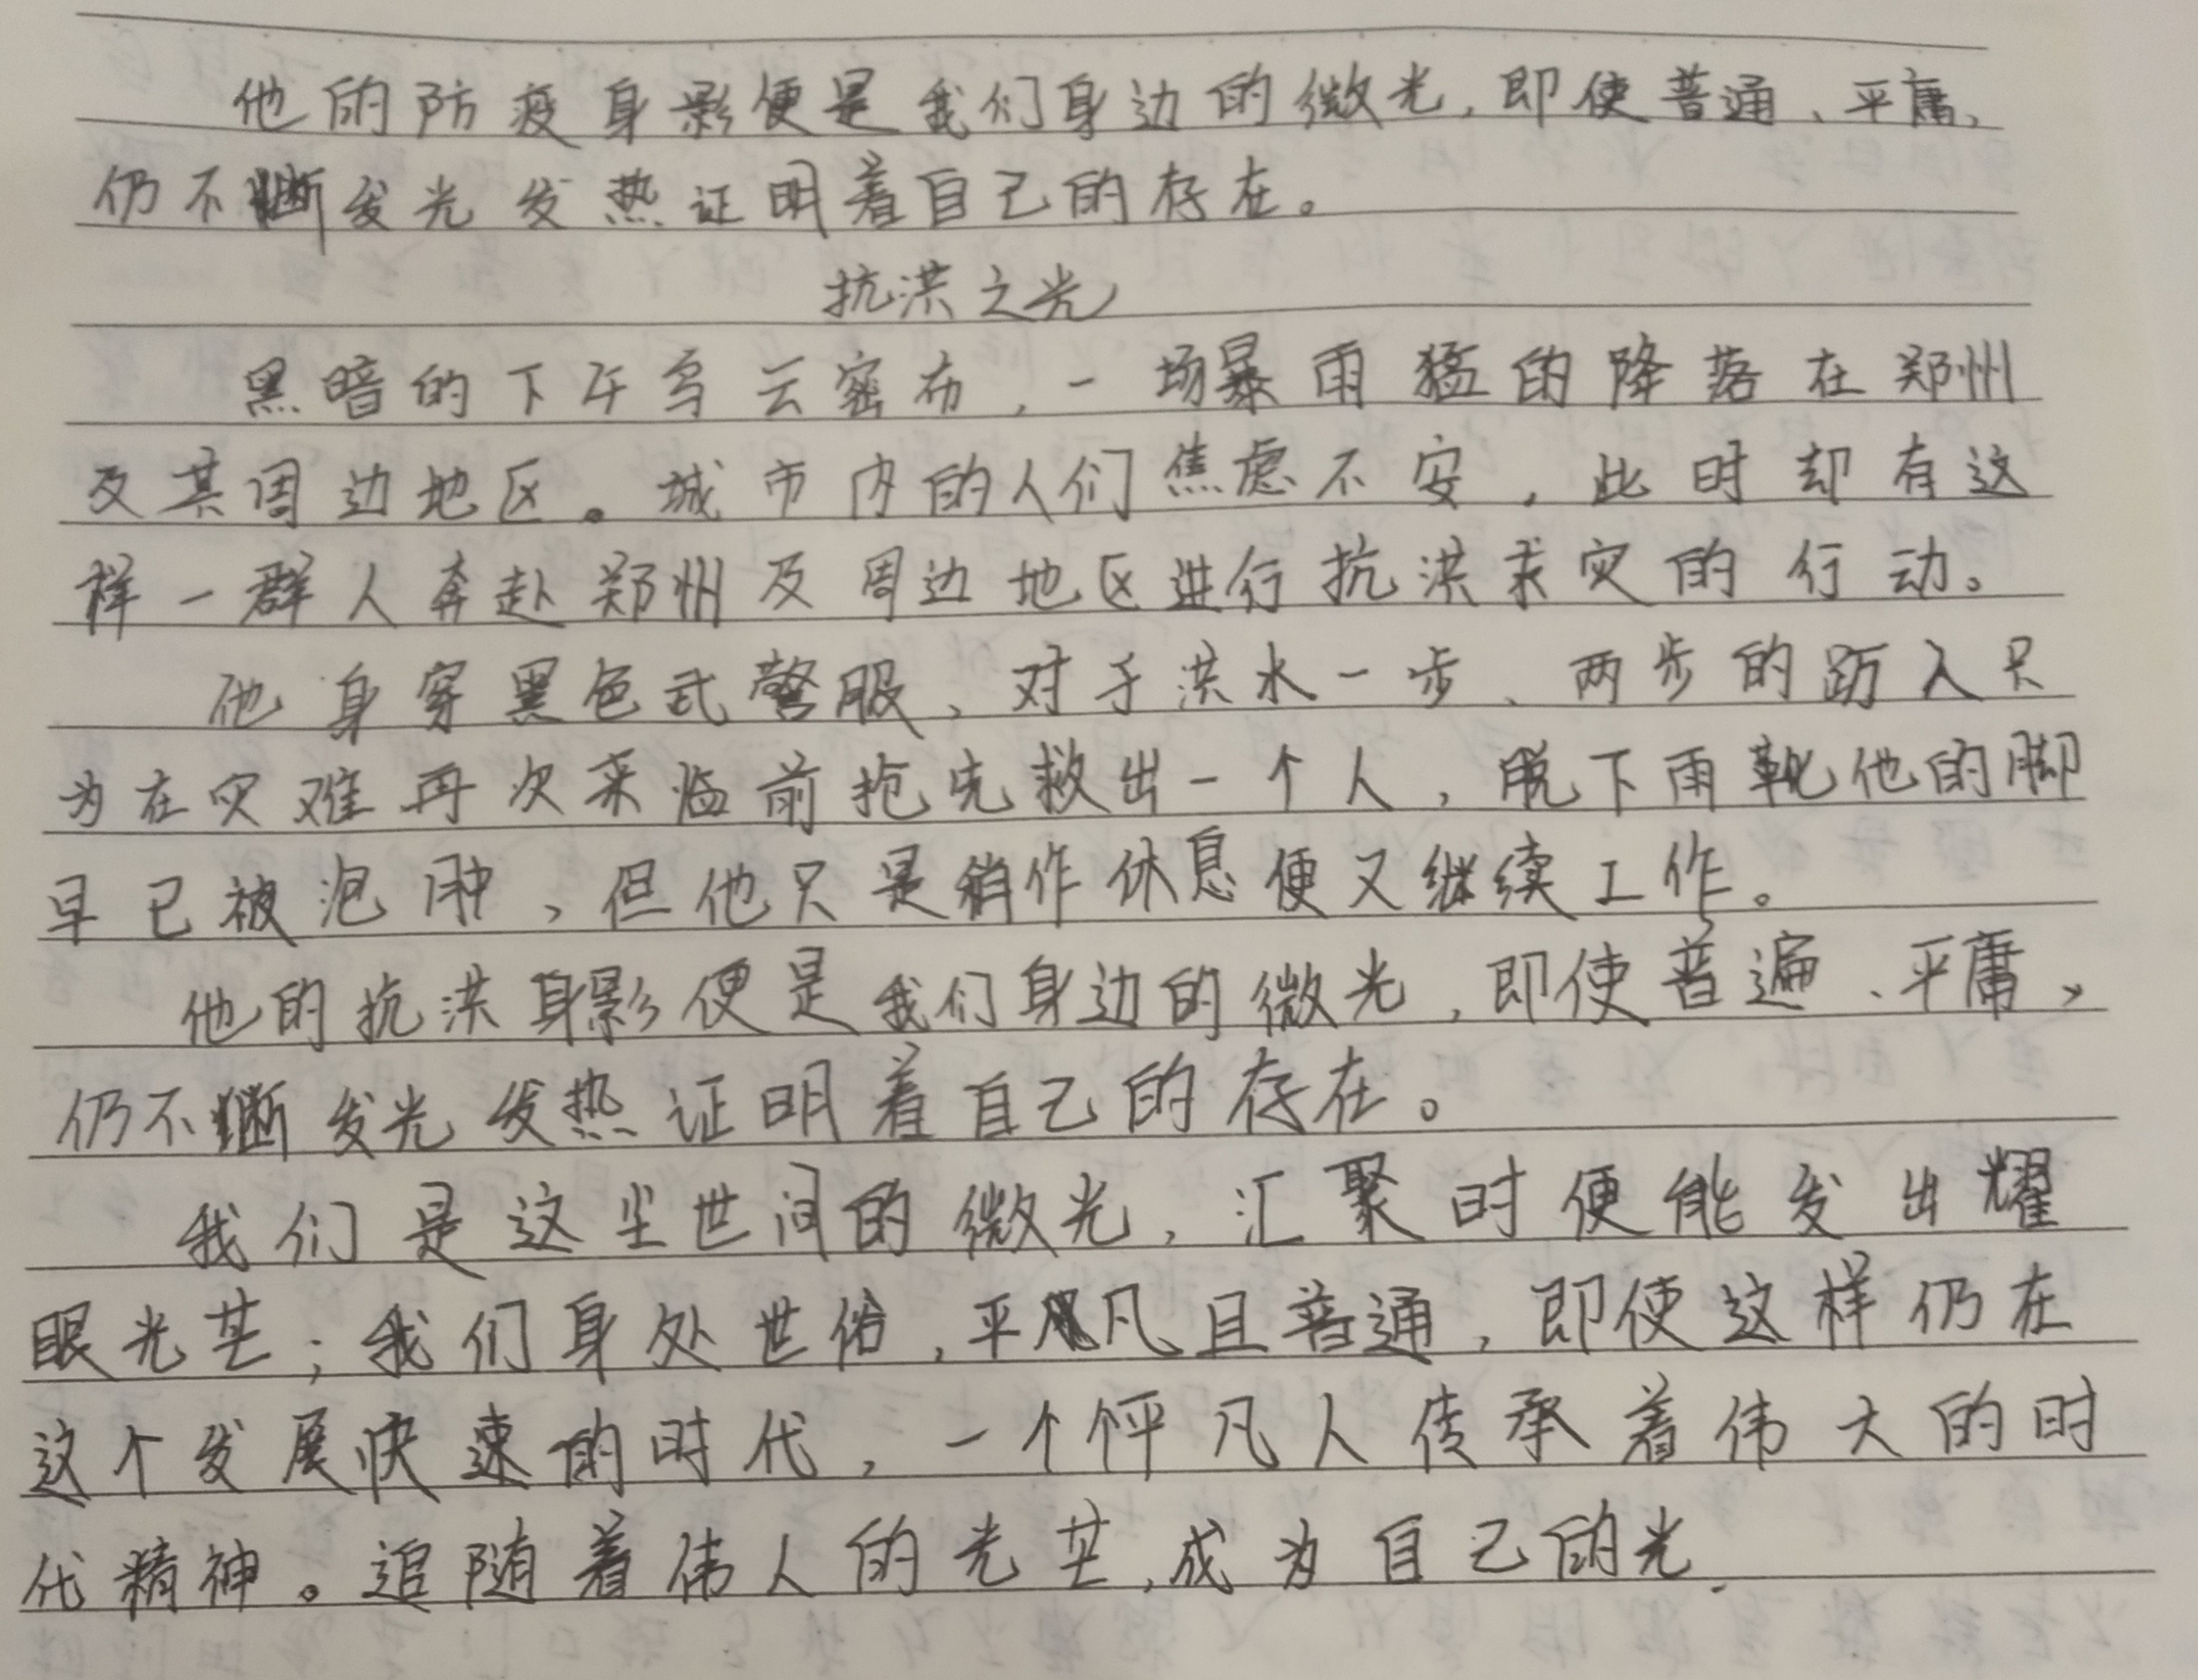 他的防疫身影便是我们身边的微光,即使普通、平庸,
仍不断发光发热证明着自己的存在。
抗洪之光
黑暗的下午乌云密布,一场暴雨猛的降落在郑州
及其周边地区。城市内的人们焦虑不安,此时却有这
样一群人奔赴郑州及周边地区进行抗洪求灾的行动。
他身穿黑色武警服、对于洪水一步、两步的跃入只
为在灾难再次来临前抢先救出一个人,脱下雨靴他的脚
早已被泡肿,但他只是稍作休息便又继续工作。
他的抗洪身影便是我们身边的微光,即使普遍、平庸,
仍不断发光发热证明着自己的存在。
我们是这尘世间的微光,汇聚时便能发出耀
眼光芒;我们身处世俗,平凡且普通,即使这样仍在
这个发展快速的时代,一个怦凡人传承着伟大的时
代精神。追随着伟人的光芒,成为自己的光.